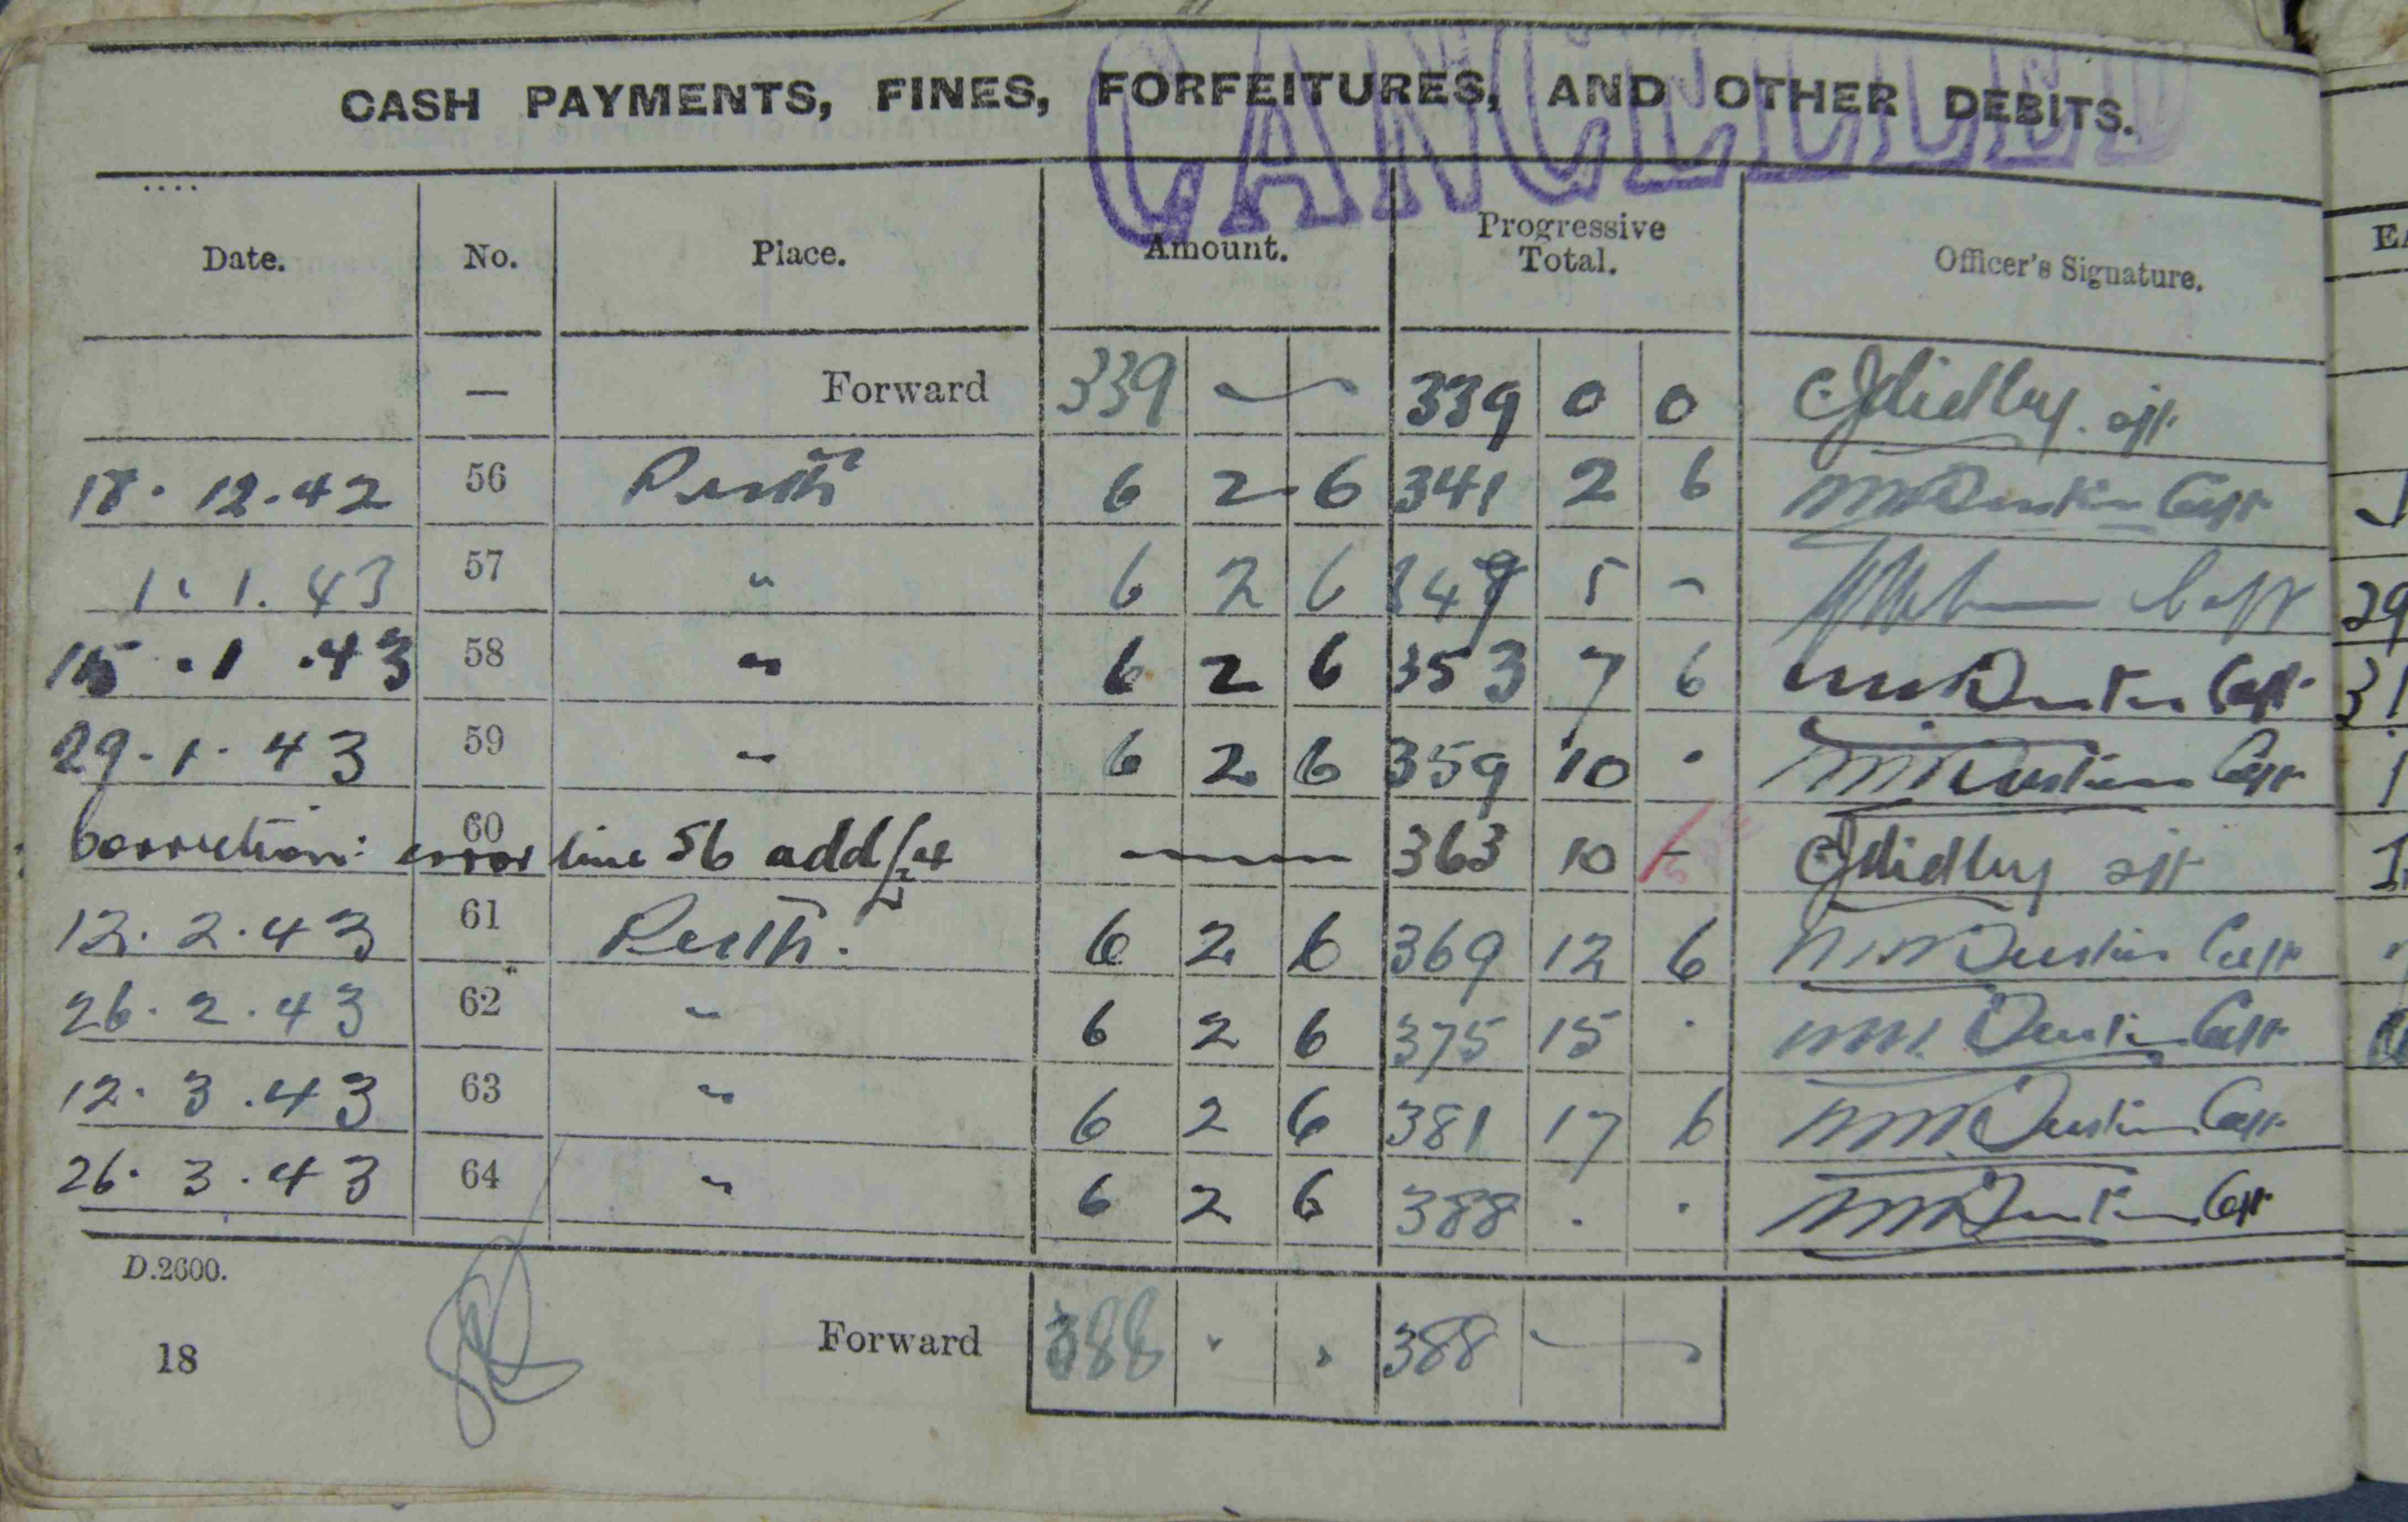 CANCELLED
CASH PAYMENTS, FINES, FORFEITURES, AND OTHER DEBITS.
Date. No. Place. Amount. Progressive Total. Officer's Signature.
— Forward 339 — 339 0 0
18. 12. 42 56 Perth 6 2 6 341 2 6 Capt
1. 1. 43 57 " 6 2 6 347 5 - Capt
15. 1. 43 58 " 6 2 6 353 7 6 Capt
29. 1. 43 59 " 6 2 6 359 10 . Capt
Correction: 60 error line 56 add £4 — 363 10 -
12. 2. 43 61 Perth. 6 2 6 369 12 6 Capt
26. 2. 43 62 " 6 2 6 375 15 . Capt
12. 3. 43 63 " 6 2 6 381 17 6 Capt
26. 3. 43 64 " 6 2 6 388 . . Capt
D.2600.
18 Forward 388 . . 388 —